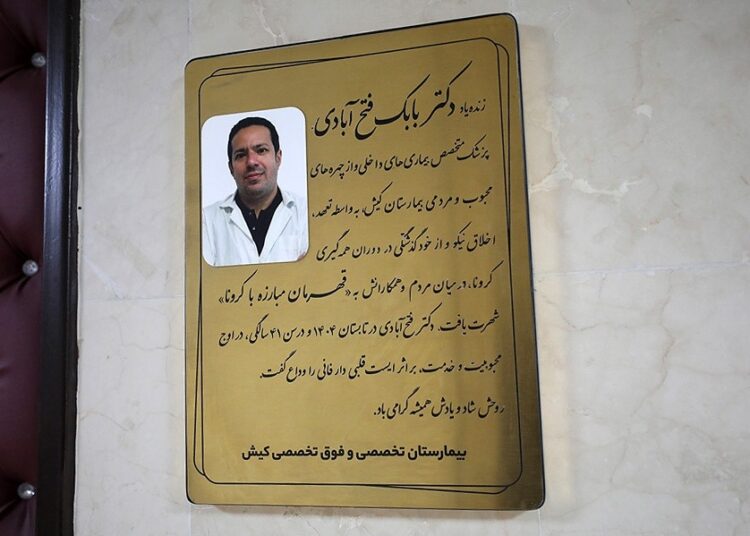 زنده‌یاد دکتر بابک فتح آبادی،
پزشک متخصص بیماری‌های داخلی و از چهره‌های
محبوب و مردمی بیمارستان کیش، به واسطه تعهد،
اخلاق نیکو و از خودگذشتگی در دوران همه‌گیری
کرونا، در میان مردم و همکارانش به «قهرمان مبارزه با کرونا»
شهرت یافت. دکتر فتح آبادی در تابستان ۱۴۰۴ و در سن ۴۱ سالگی، در اوج
محبوبیت و خدمت، بر اثر ایست قلبی دار فانی را وداع گفت.
روحش شاد و یادش همیشه گرامی باد.
بیمارستان تخصصی و فوق تخصصی کیش